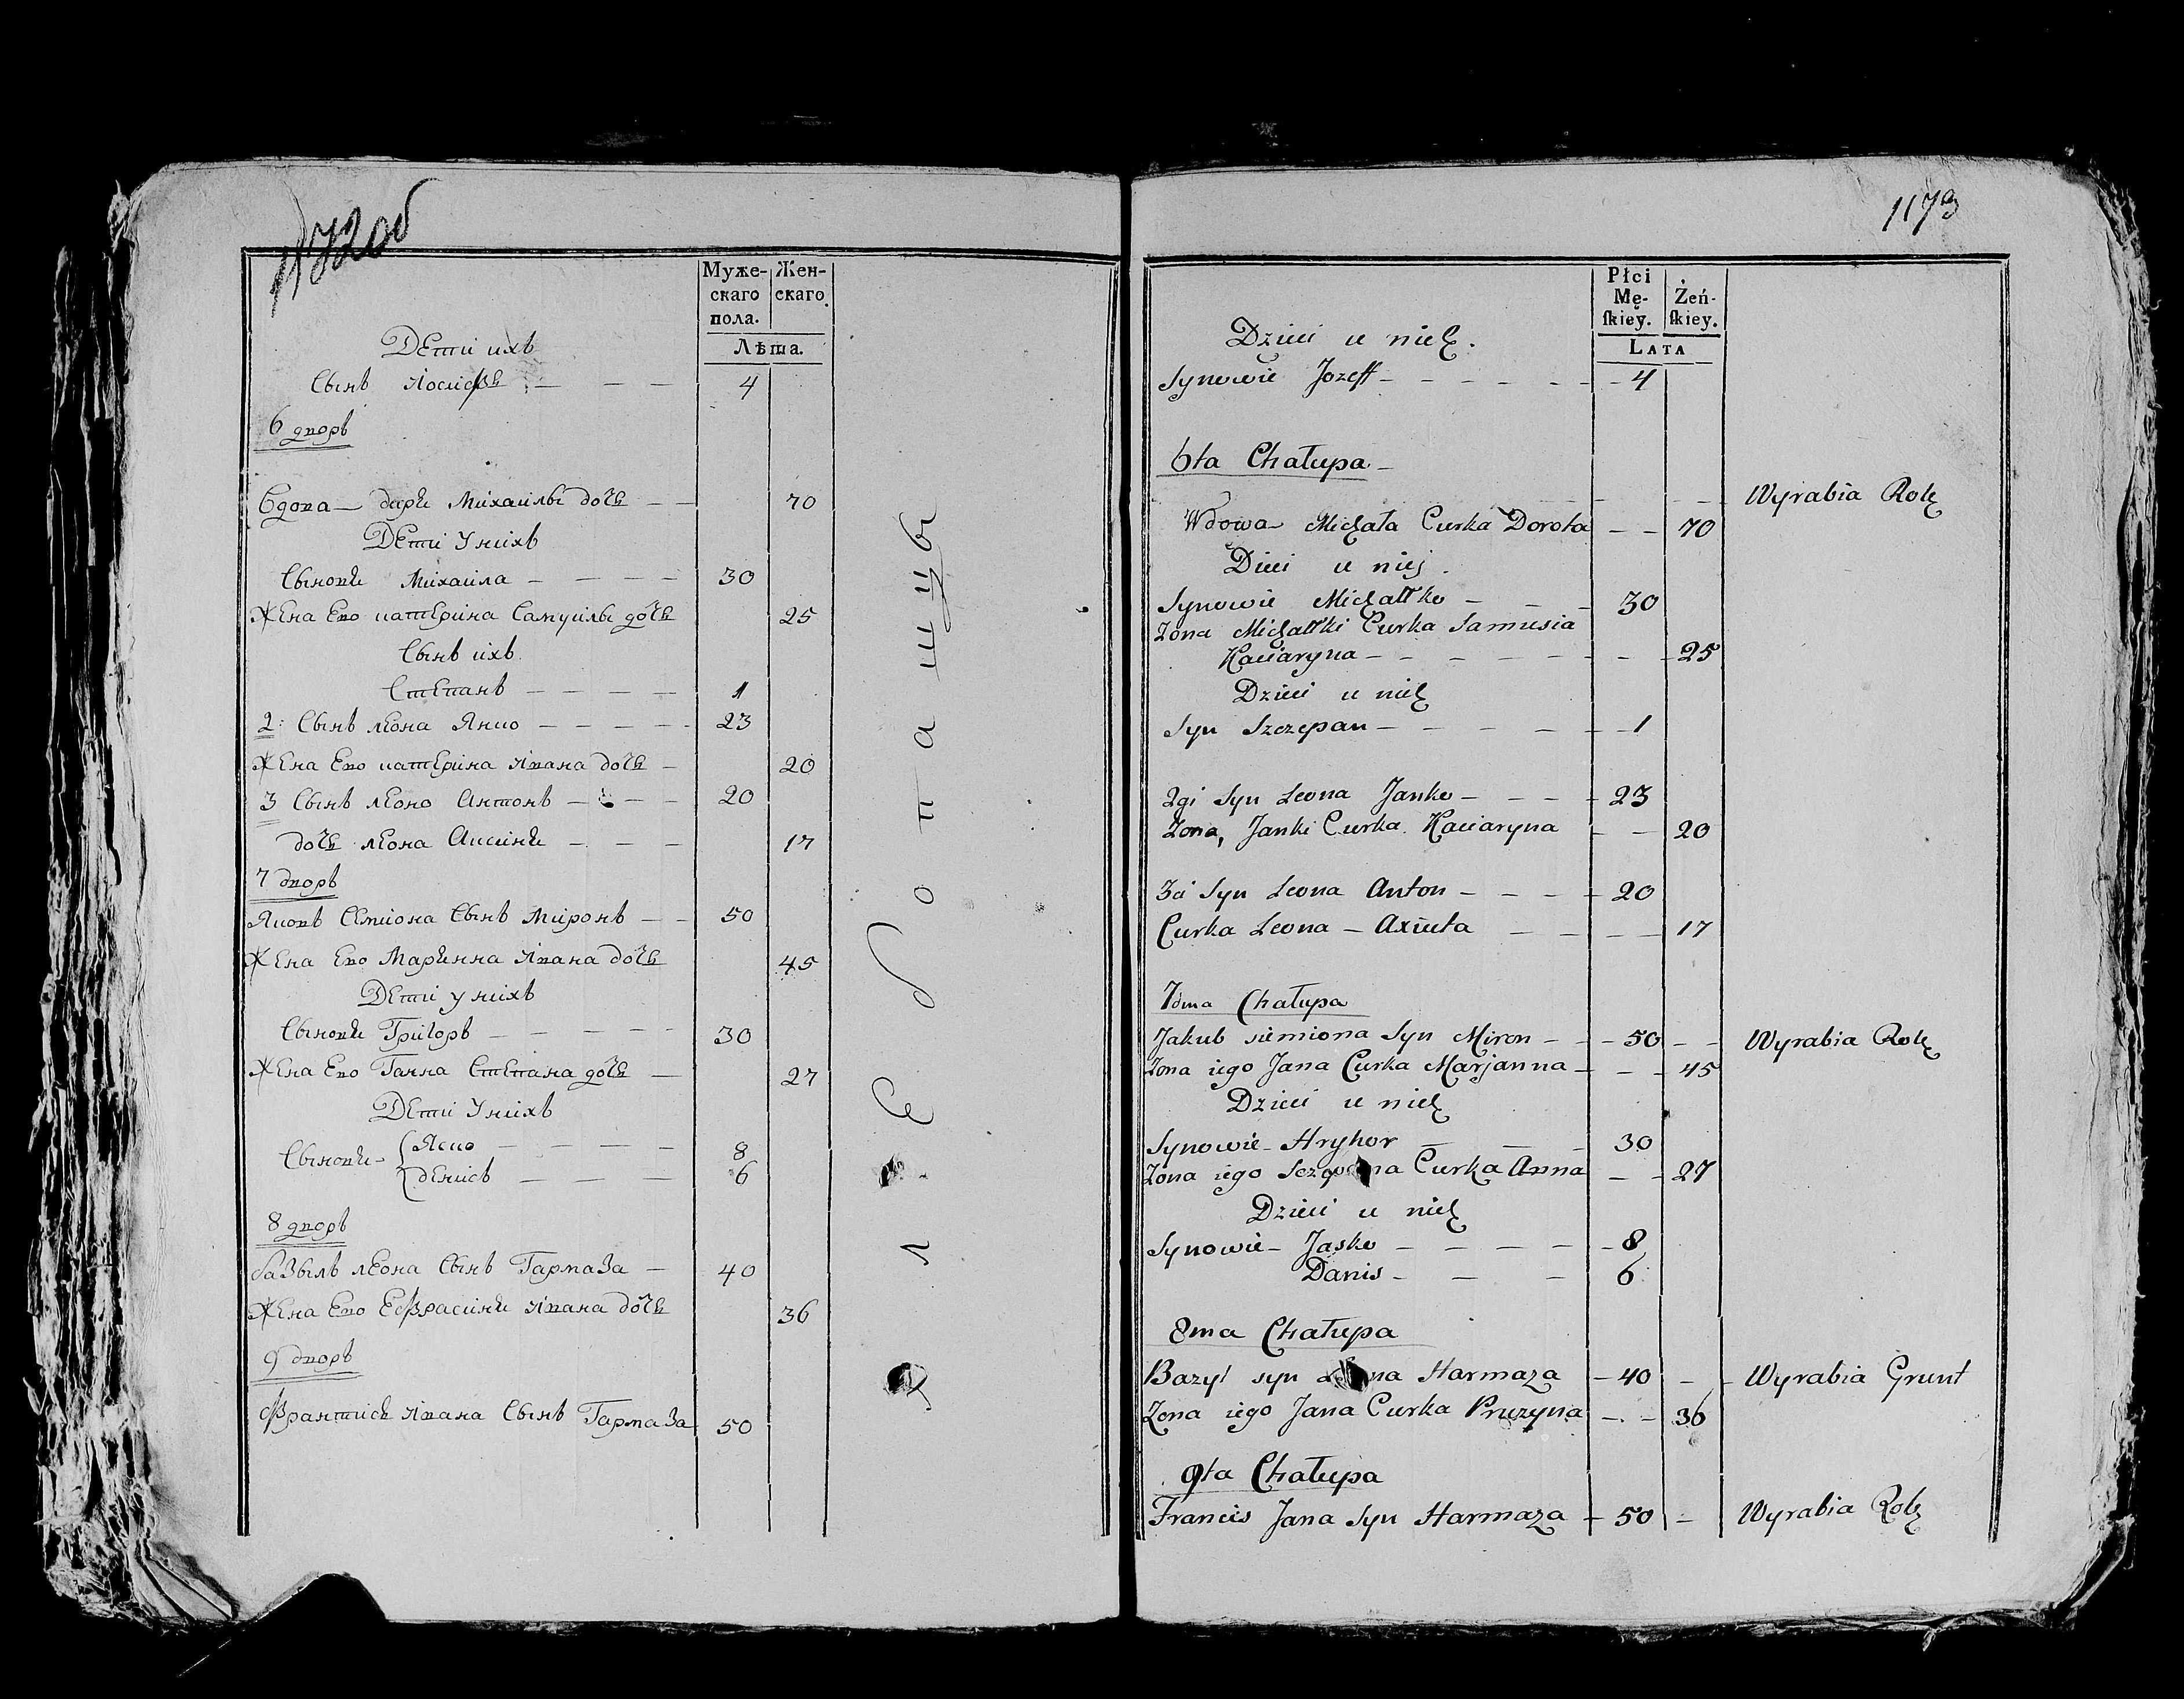 1172 об
Муже-
скаго
пола.
Жен-
скаго.
Лѣта.
Дети ихъ
Сынъ Иосифъ 4
6 дворъ
Вдова дарь Михаилы дочь 70
Дети У нихъ
Сынови Михаила 30
Жена Ево катерина Самуилы дочь 25
Сынъ ихъ
Степанъ 1
2: Сынъ леона Янко 23
Жена Ево катерина ивана дочь 20
3 Сынъ леоно Антонъ 20
дочь леона Аксиня 17
7 дворъ
Яковъ Семиона Сынъ Миронъ 50
Жена Ево Марянна ивана дочь 45
Дети у нихъ
Сынови Григоръ 30
Жена Ево Ганна Степана дочь 27
Дети У нихъ
Сынови Яско 8
денисъ 6
8 дворъ
базыль леона Сынъ Гармаза 40
Жена Ево Ефрасиня ивана дочь 36
9 дворъ
Франтись ивана Сынъ Гармаза 50
хлебопашцы
1173
Płci
Mę-
ſkiey.
Żeń-
ſkiey.
LATA
Dzieci u nich.
Synowie Jozeff 4
6ta Chałupa
Wyrabia Rolę
Wdowa Michała Curka Dorota 70
Dieci u niej.
Synowie Michałko 30
Zona Michałki Curka Samusia
Kaciaryna 25
Dzieci u nich
Syn Szczepan 1
2gi Syn Leona Janko 23
Zona, Janki Curka Kaciaryna 20
3ci Syn Leona Anton 20
Curka Leona Axiuta 17
7dma Chałupa
Jakub siemiona Syn Miron 50 Wyrabia Rolę
Zona iego Jana Curka Marjanna 45
Dzieci u nich
Synowie Hryhor 30
Zona iego Curka Anna 27
Dzieci u nich
Synowie Jasko 8
Danis 6
8ma Chałupa
Bazyl syn Harmaza 40 Wyrabia Grunt
Zona iego Jana Curka Pruzyna 36
9ta Chałupa
Francis Jana Syn Harmaza 50 Wyrabia Rolę